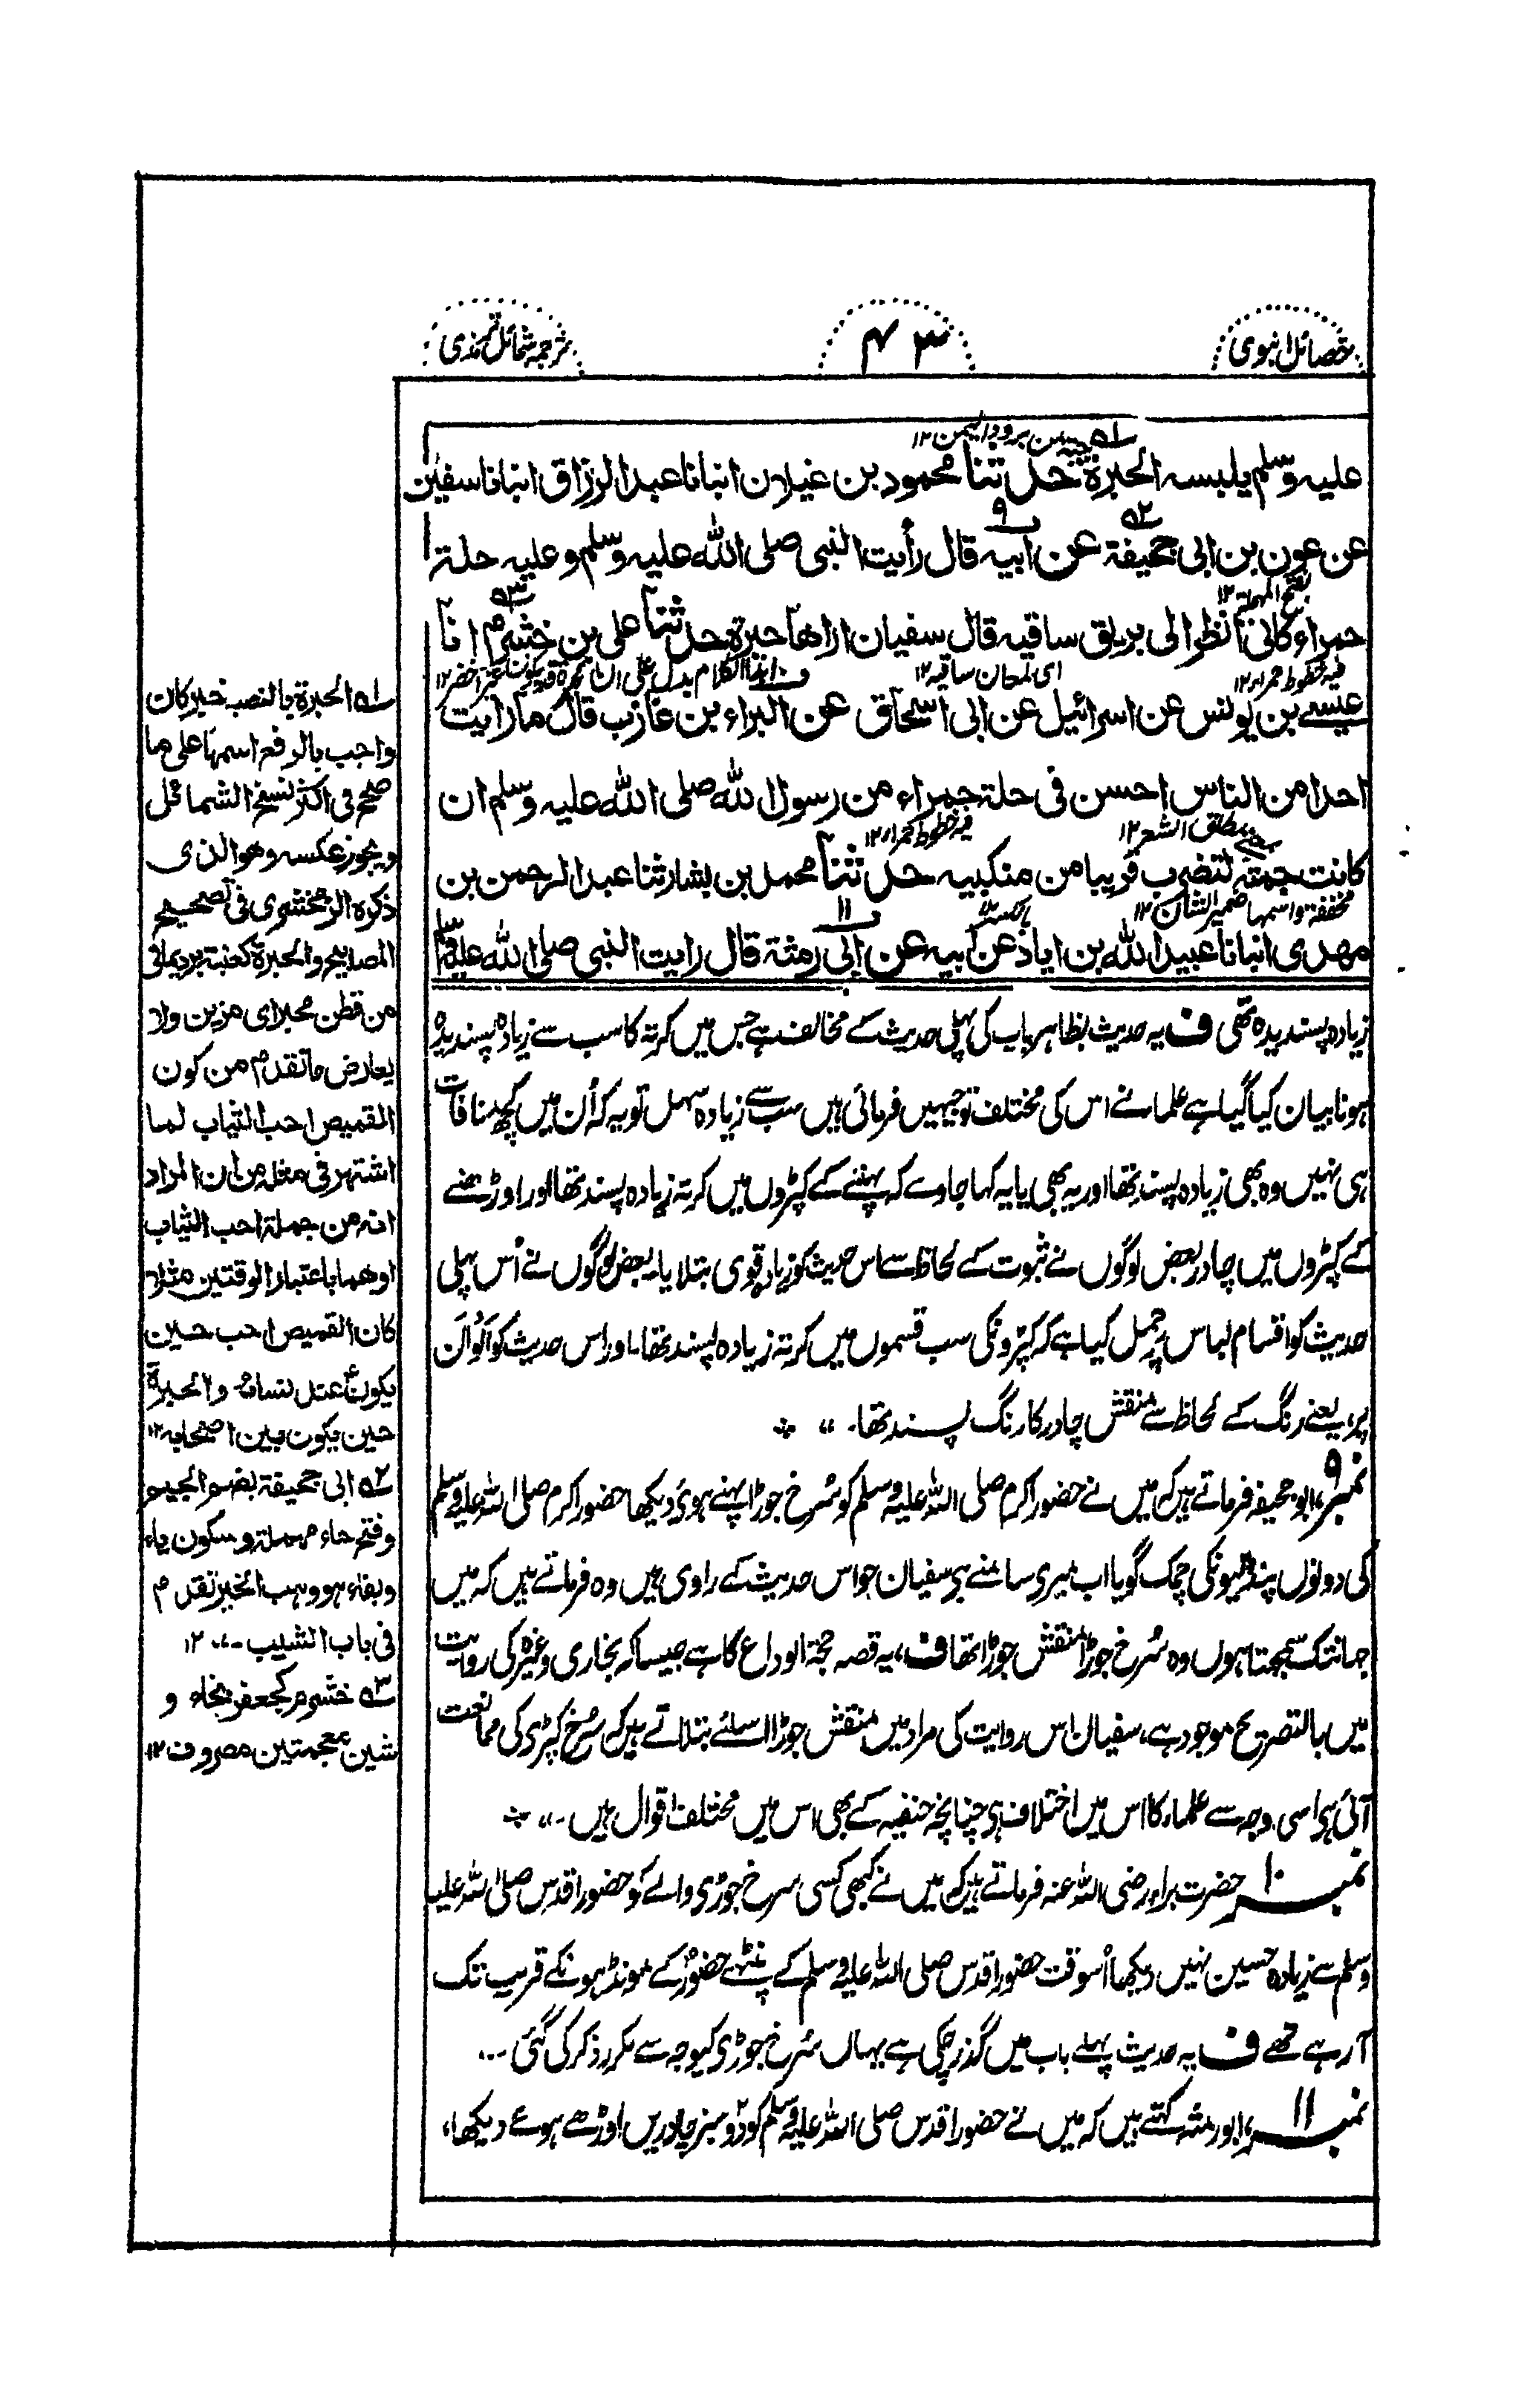 خصائل نبوی
۴۳
ترجمہ شمائل ترمذی
علیہ وسلم یلبسہ الحبرة حدثنا محمود بن غیلان انبانا عبدالرزاق انبانا سفیٰن
عن عون بن ابی جحیفة عن ابیہ قال رأیت النبی صلی اللہ علیہ وسلم وعلیہ حلة
بفتح المہملة ۱۲
حمراء کانی انظر الی بریق ساقیہ قال سفیان اراھا حبرة حدثنا علی بن خشرم انا
فیہ خطوط حمراء ۱۲
ای لمعان ساقیہ ۱۲
عیسے بن یونس عن اسرائیل عن ابی اسحاق عن البراء بن عازب قال ما رایت
احدا من الناس احسن فی حلة حمراء من رسول اللہ صلی اللہ علیہ وسلم ان
مطلق الشعر ۱۲
فیہ خطوط حمراء ۱۲
کانت جمتہ لتضرب قریبا من منکبیہ حدثنا محمد بن بشار ثنا عبدالرحمن بن
مخففة واسمھا ضمیر الشان ۱۲
مہدی انبانا عبیداللہ بن ایاد عن ابیہ عن ابی رمثة قال رایت النبی صلی اللہ علیہ وسلم
زیادہ پسندیدہ تھی ف یہ حدیث بظاہر باب کی پہلی حدیث کے مخالف ہے جس میں کرتہ کا سب سے زیادہ پسندیدہ
ہونا بیان کیا گیا ہے علما نے اس کی مختلف توجیہیں فرمائی ہیں سب سے زیادہ سہل تو یہ کہ اُن میں کچھ منافات
ہی نہیں وہ بھی زیادہ پسند تھا اور یہ بھی یا یہ کہا جاوے کہ پہننے کے کپڑوں میں کرتہ زیادہ پسند تھا اور اوڑھنے
کے کپڑوں میں چادر بعض لوگوں نے ثبوت کے لحاظ سے اس حدیث کو زیادہ قوی بتلایا۔ بعض لوگوں نے اُس پہلی
حدیث کو اقسام لباس پر حمل کیا ہے کہ کپڑونکی سب قسموں میں کرتہ زیادہ پسند تھا۔ اور اس حدیث کو اَلْوَان
پر، یعنے رنگ کے لحاظ سے منقش چادر کا رنگ پسند تھا۔
نمبر ۹، ابو جحیفہ فرماتے ہیں کہ میں نے حضور اکرم صلی اللہ علیہ وسلم کو سُرخ جوڑا پہنے ہوئ دیکھا حضور اکرم صلی اللہ علیہ وسلم
کی دونوں پنڈلیونکی چمک گویا اب میری سامنے ہی سفیان جو اس حدیث کے راوی ہیں وہ فرماتے ہیں کہ میں
جہانتک سمجھتا ہوں وہ سُرخ جوڑا منقش جوڑا تھا ف، یہ قصہ حجۃ الوداع کا ہے جیسا کہ بخاری وغیرہ کی روایت
میں بالتصریح موجود ہے، سفیان اس روایت کی مراد میں منقش جوڑا اسلئے بتلاتے ہیں کہ سُرخ کپڑی کی ممانعت
آئی ہی اسی وجہ سے علماء کا اس میں اختلاف ہی چنانچہ حنفیہ کے بھی اس میں مختلف اقوال ہیں۔
نمبر ۱۰ حضرت براء رضی اللہ عنہ فرماتے ہیں کہ میں نے کبھی کسی سرخ جوڑی والے کو حضور اقدس صلی اللہ علیہ
وسلم سے زیادہ حسین نہیں دیکھا اُسوقت حضور اقدس صلی اللہ علیہ وسلم کے پٹھے حضورؐ کے مونڈھونکے قریب تک
آرہے تھے ف یہ حدیث پہلے باب میں گذر چکی ہے یہاں سُرخ جوڑی کیوجہ سے مکرر ذکر کی گئی۔
نمبر ۱۱، ابو رمثہ کہتے ہیں کہ میں نے حضور اقدس صلی اللہ علیہ وسلم کو دو سبز چادریں اوڑھے ہوئے دیکھا،
۱ الحبرة بالنصب خبر کان
واجب بالرفع اسمہا علی ما
صحح فی اکثر نسخ الشمائل
ویجوز عکسہ وھو الذی
ذکرہ الزمخشری فی تصحیح
المصابیح والحبرة کعنبة برد یمانی
من قطن محبر ای مزین ولا
یعارض ما تقدم من کون
القمیص احب الثیاب لما
اشتہر فی مثلہ من ان المراد
انہ من جملة احب الثیاب
او ھما باعتبار الوقتین مثلا
کان القمیص احب حین
یکون عند نسائہ والحبرة
حین یکون بین اصحابہ ۱۲
۲ ابی جحیفة بضم الجیم
وفتح حاء مہملة وسکون یاء
وبفاء ھو وہب الخیر تقدم
فی باب الشیب ۱۲
۳ خشرم کجعفر بخاء و
شین معجمتین مصروف ۱۲